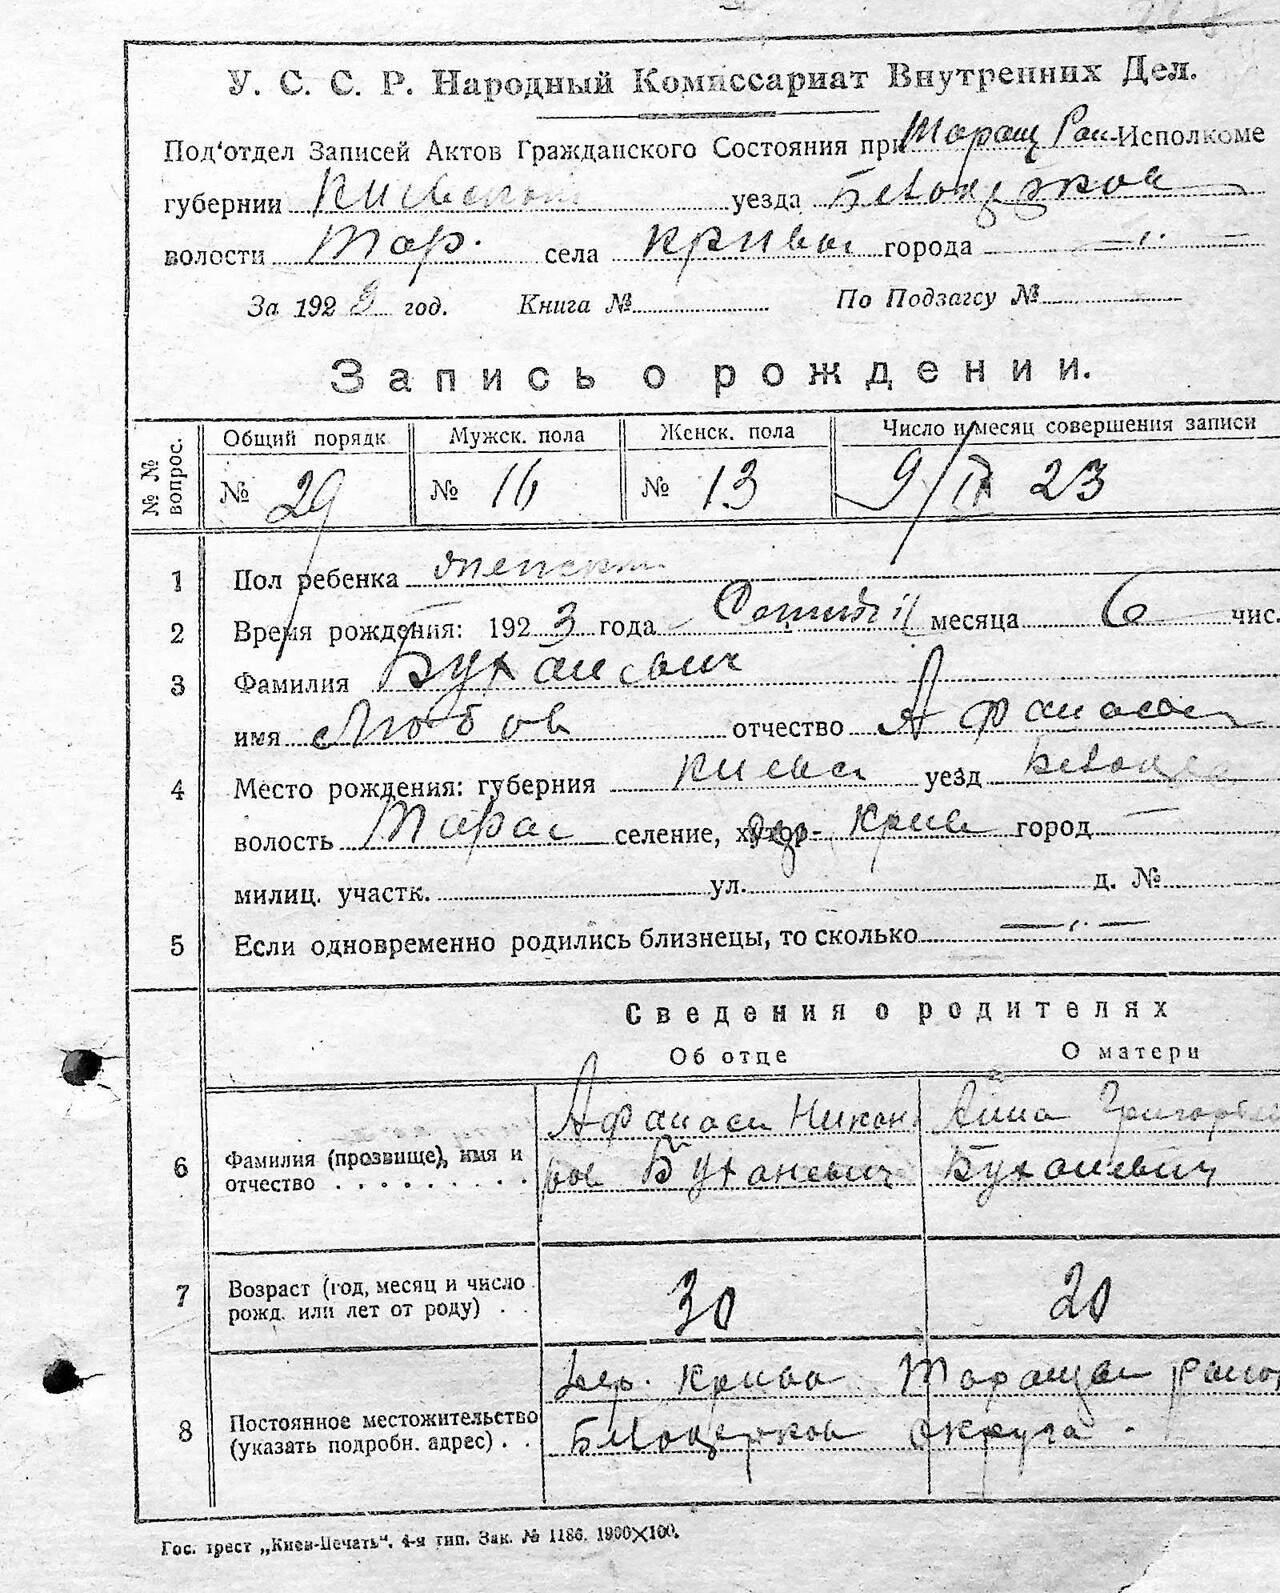 У. С. С. Р. Народный Комиссариат Внутренних Дел.
Под'отдел Записей Актов Гражданского Состояния при Таращ Рай-Исполкоме
губернии Киевской уезда Белоцерков
волости Тар. села Крива города —〃—
За 1923 год. Книга № По Подзагсу №
Запись о рождении.
№ № вопрос.
Общий порядк Мужск. пола Женск. пола Число и месяц совершения записи
№ 29 № 16 № 13 9/IX 23
1 Пол ребенка женский
2 Время рождения: 1923 года месяца 6 чис.
3 Фамилия Буханевич
имя Любов отчество Афанасьев
4 Место рождения: губерния Киевск уезд Белоцер
волость Тараш селение, хутор Крив город —
милиц. участк. ул. д. №
5 Если одновременно родились близнецы, то сколько —〃—
Сведения о родителях
Об отце О матери
Афанаси Никоно Анна Григорьев
6 Фамилия (прозвище), имя и
отчество . . . . . . . . . вов Буханевич Буханевич
7 Возраст (год, месяц и число
рожд. или лет от роду) . . 30 20
дер. Крива Таращан район
8 Постоянное местожительство
(указать подробн. адрес) . . Белоцерков округа.
Гос. трест „Киев-Печать“. 4-я тип. Зак. № 1186. 1900×100.